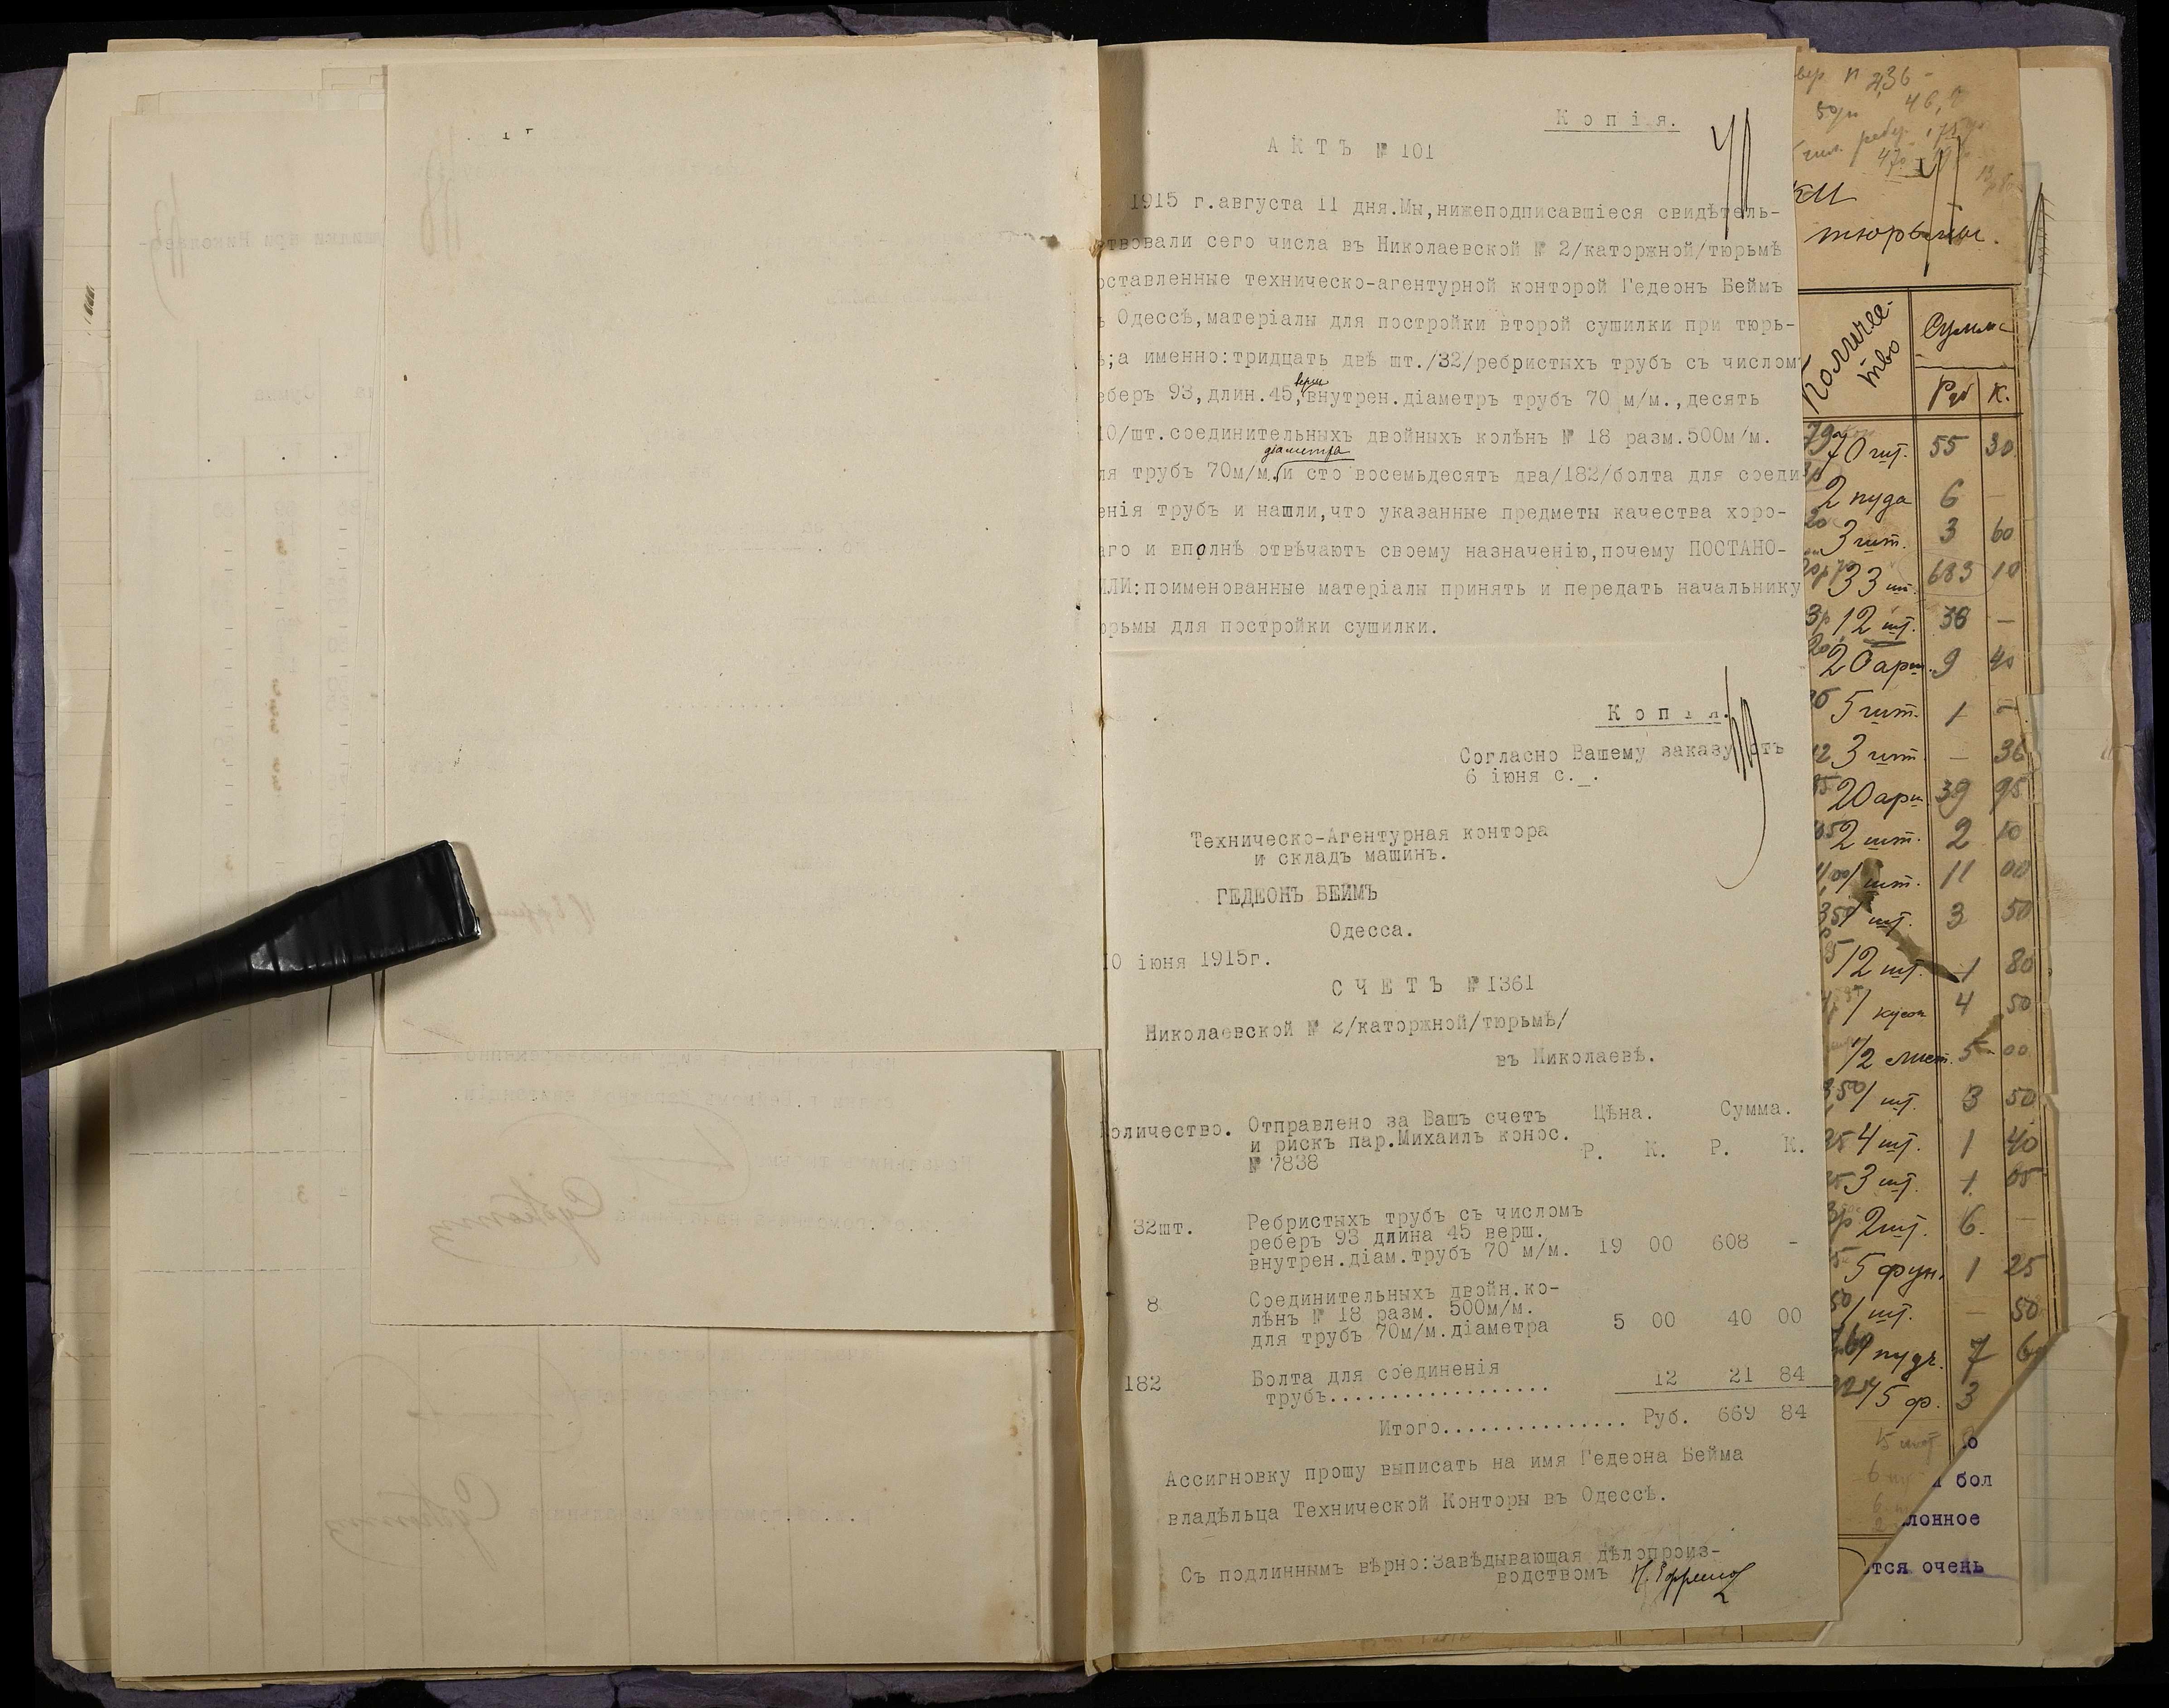 Копія.
АКТЪ № 101
1915 г.августа 11 дня.Мы,нижеподписавшіеся свидѣтель-
ствовали сего числа въ Николаевской № 2/каторжной/тюрьмѣ
оставленные техническо-агентурной конторой Гедеонъ Беймъ
ъ Одессѣ,матеріалы для постройки второй сушилки при тюрь-
ѣ;а именно:тридцать двѣ шт./32/ребристыхъ трубъ съ числомъ
еберъ 93,длин.45,верш внутрен.діаметръ трубъ 70 м/м.,десять
10/шт.соединительныхъ двойныхъ колѣнъ № 18 разм.500м/м.
ля трубъ 70м/м.діаметра и сто восемьдесять два/182/болта для соеди-
енія трубъ и нашли,что указанные предметы качества хоро-
аго и вполнѣ отвѣчаютъ своему назначенію,почему ПОСТАНО-
ИЛИ:поименованные матеріалы принять и передать начальнику
юрьмы для постройки сушилки.
Копія.
Согласно Вашему заказу отъ
6 іюня с. .
Техническо-Агентурная контора
и складъ машинъ.
ГЕДЕОНЪ БЕЙМЪ
Одесса.
10 іюня 1915г.
СЧЕТЪ №1361
Николаевской № 2/каторжной/тюрьмѣ/
въ Николаевѣ.
оличество. Отправлено за Вашъ счетъ Цѣна. Сумма.
и рискъ пар.Михаилъ конос.
№ 7838 Р. К. Р. К.
32шт. Ребристыхъ трубъ съ числомъ
реберъ 93 длина 45 верш.
внутрен.діам.трубъ 70 м/м. 19 00 608 -
8 Соединительныхъ двойн.ко-
лѣнъ № 18 разм. 500м/м.
для трубъ 70м/м.діаметра 5 00 40 00
182 Болта для соединенія
трубъ.................. 12 21 84
Итого............... Руб. 669 84
Ассигновку прошу выписать на имя Гедеона Бейма
владѣльца Технической Конторы въ Одессѣ.
Съ подлиннымъ вѣрно:Завѣдывающая дѣлопроиз-
водствомъ
тюрьмы.
Количес-
тво
Сумма
Руб К.
70 шт. 55 30
2 пуда 6 -
3 шт. 3 60
33 шт. 683 10
12 шт. 36 -
20 арш. 9 40
5 шт. 1 -
3 шт. - 36
20 арш. 39 95
2 шт. 2 10
1 шт. 11 00
1 шт. 3 50
12 шт. 1 80
1 кусок 4 50
1/2 лист. 5 00
1 шт. 3 50
4 шт. 1 40
3 шт. 1 05
2 шт. 6 -
5 фун. 1 25
1 шт. - 50
1 пудъ. 7 60
15 ф. 3
бол
лонное
тся очень